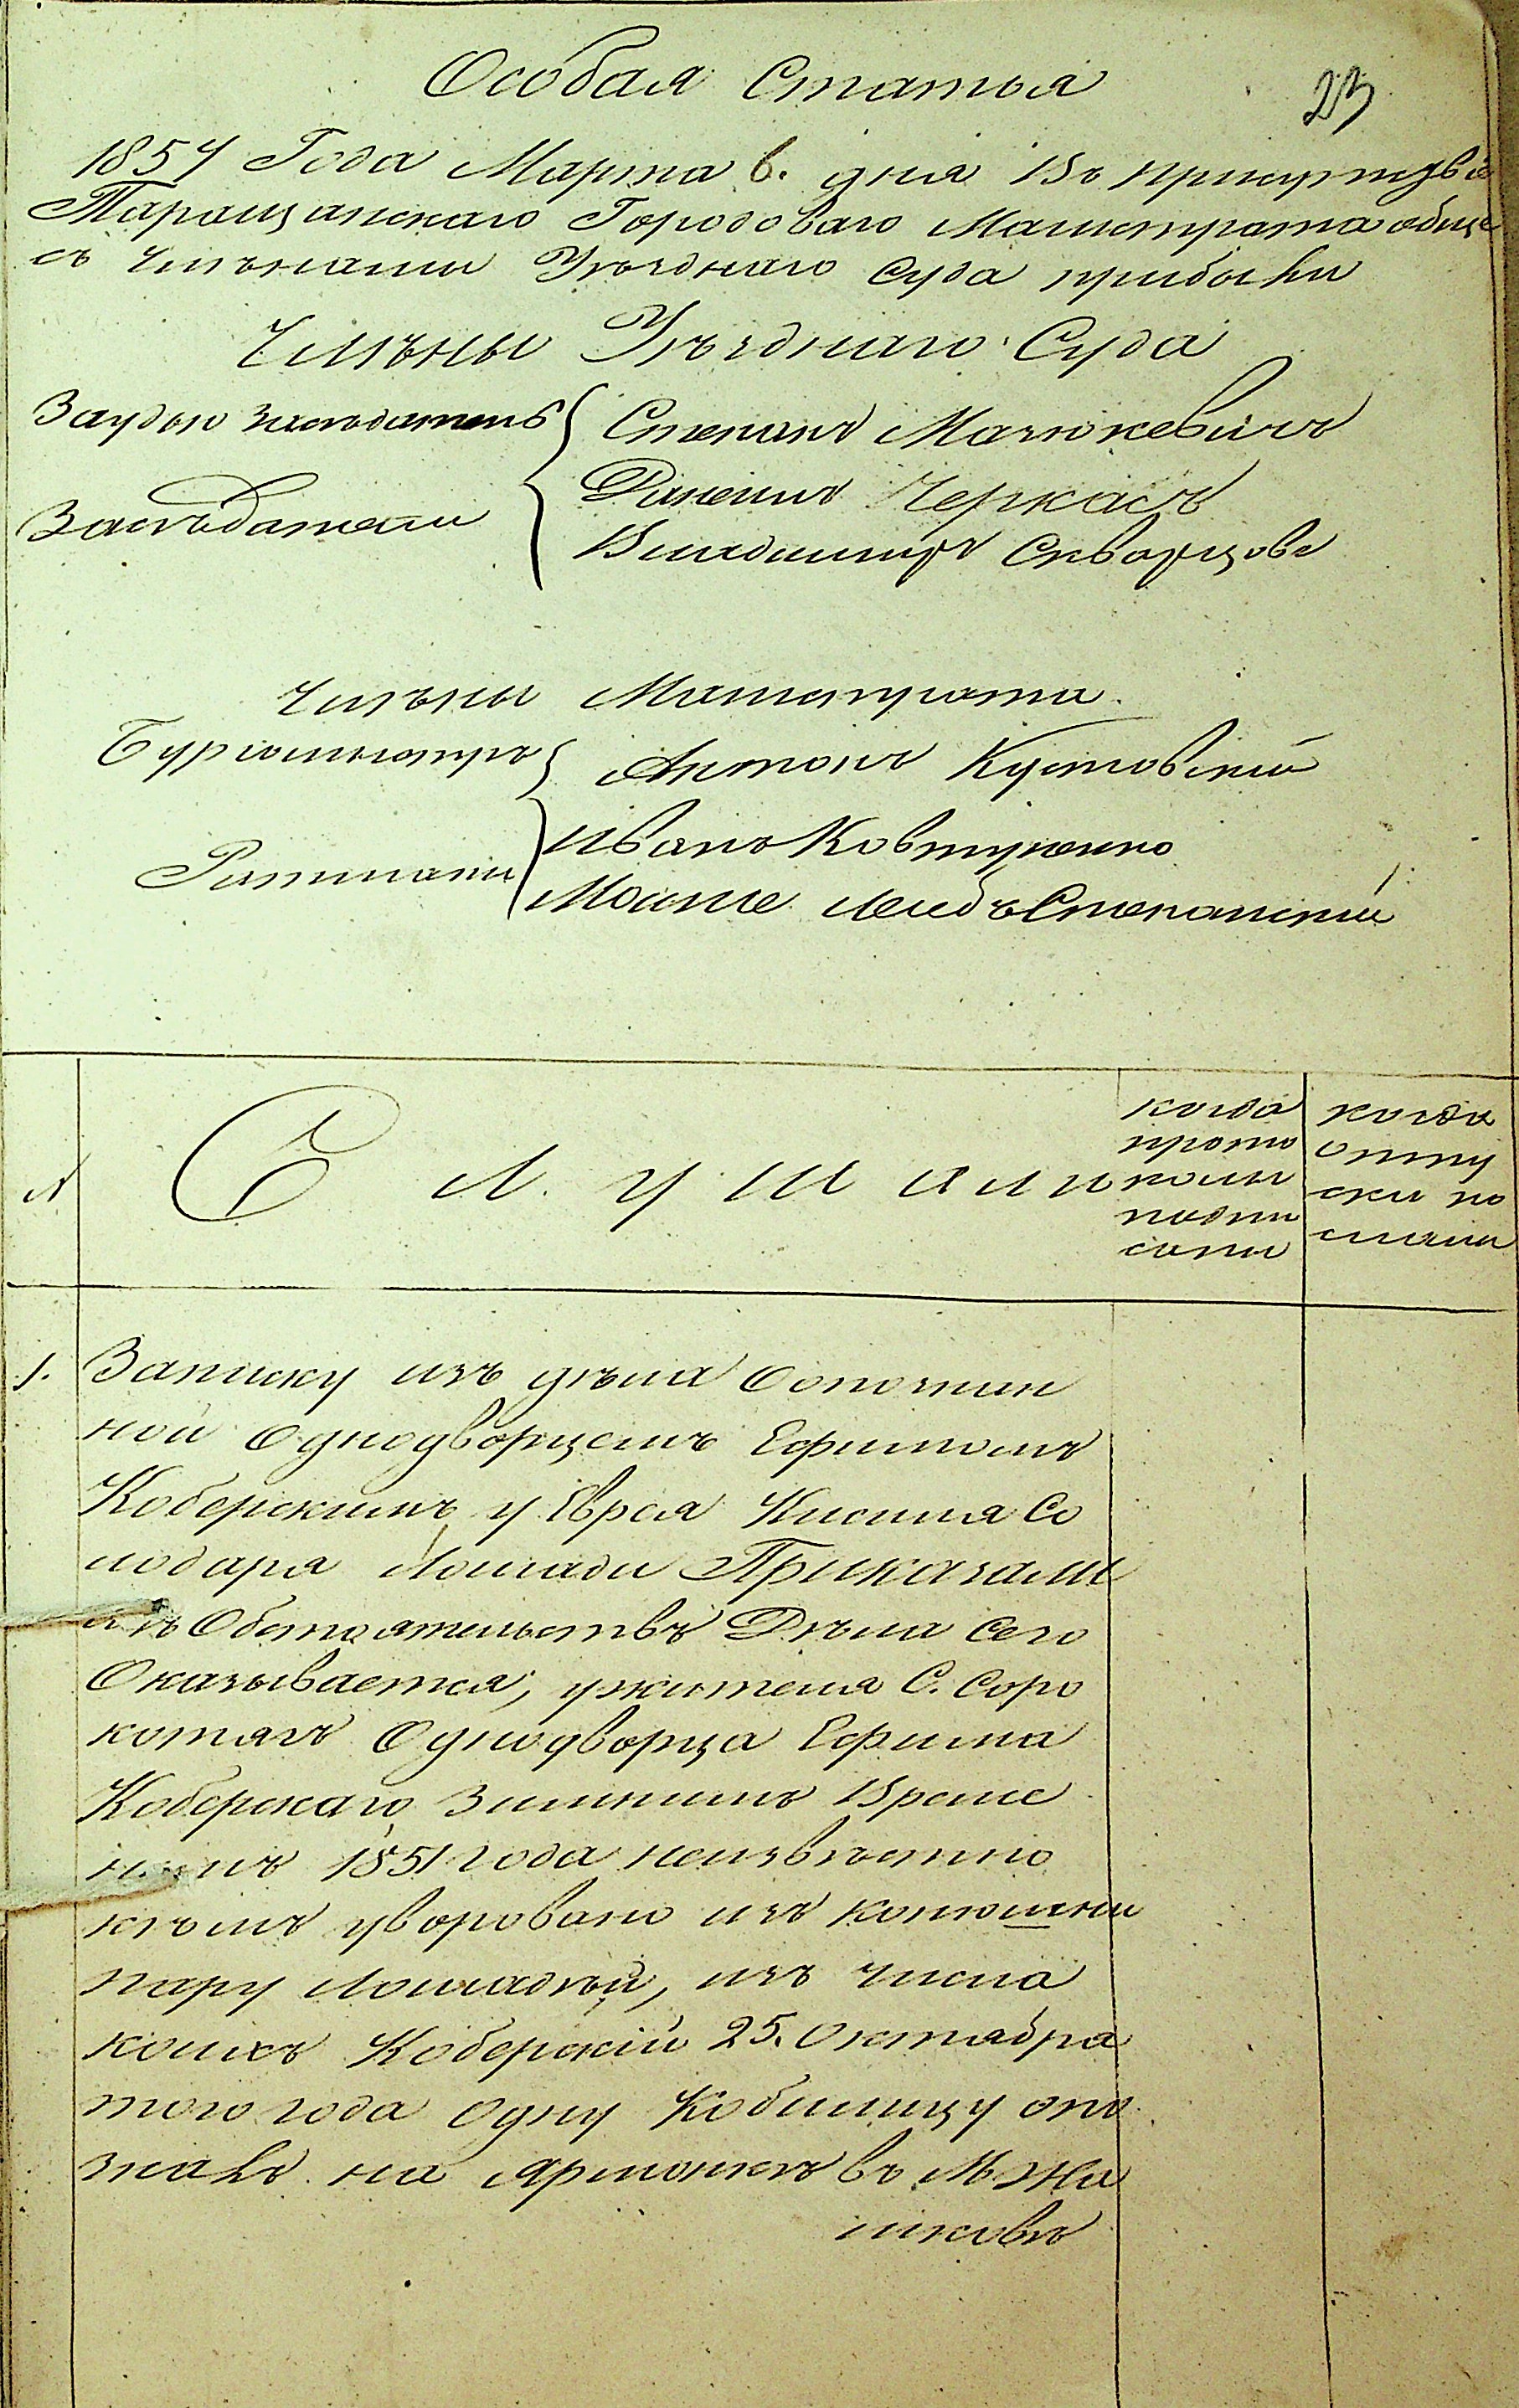 Особая Статья
23
1857 Года Марта 6. дня Въ присутствіе
Таращанскаго Городоваго Магистрата обще
съ членами Уѣзднаго Суда прибыли
Члѣны Уѣзднаго Суда
За судью Засѣдатель { Степанъ Мазюкевичъ
Засѣдатели { Черкасъ
Владимиръ Скворцовъ
Члѣны Магистрата.
Бургомистръ } Антонъ Кустовскій
Ратманы } Иванъ Ковтуненко
Мошке Лейбъ Степанскій
№ Слушали
когда прото колы подпи саны
когда отпу ски по сланы
1. Записку изъ дѣла Опознан
ной Однодворцемъ Ефимомъ
Коберскимъ у Еврея Кисиля Со
лодаря Лошади Приказали
изъ Обстоятельствъ Дѣла сего
Оказывается, у жителя С. Соро
котягъ Однодворца Ефима
Коберскаго Зимнимъ Време
немъ 1851 года неизвѣстно
кѣмъ уворовано изъ конюшни
пару Лошадѣй, изъ числа
коихъ Коберскій 25. Октября
того года одну Кобылицу опо
зналъ на Ярмонкѣ въ М. Жа
шковѣ